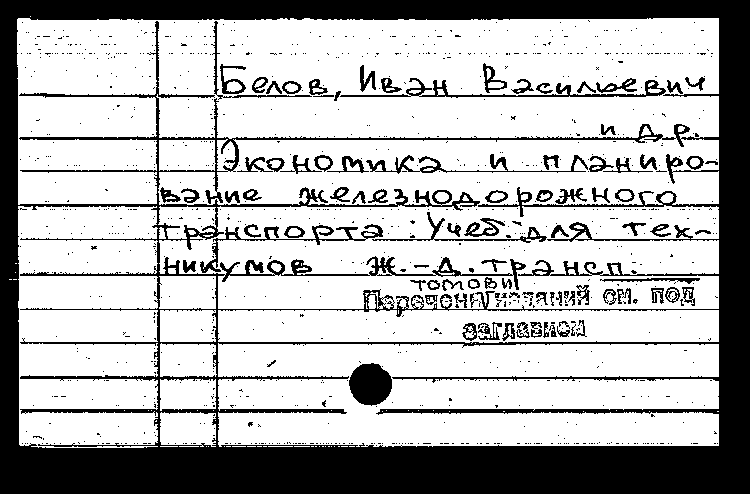 Белов, Иван Васильевич
и др.
Экономика и планиро-
вание железнодорожного
транспорта : Учеб. для тех-
никумов ж.-д. трансп.
томови
Перечень изданий см. под
заглавием